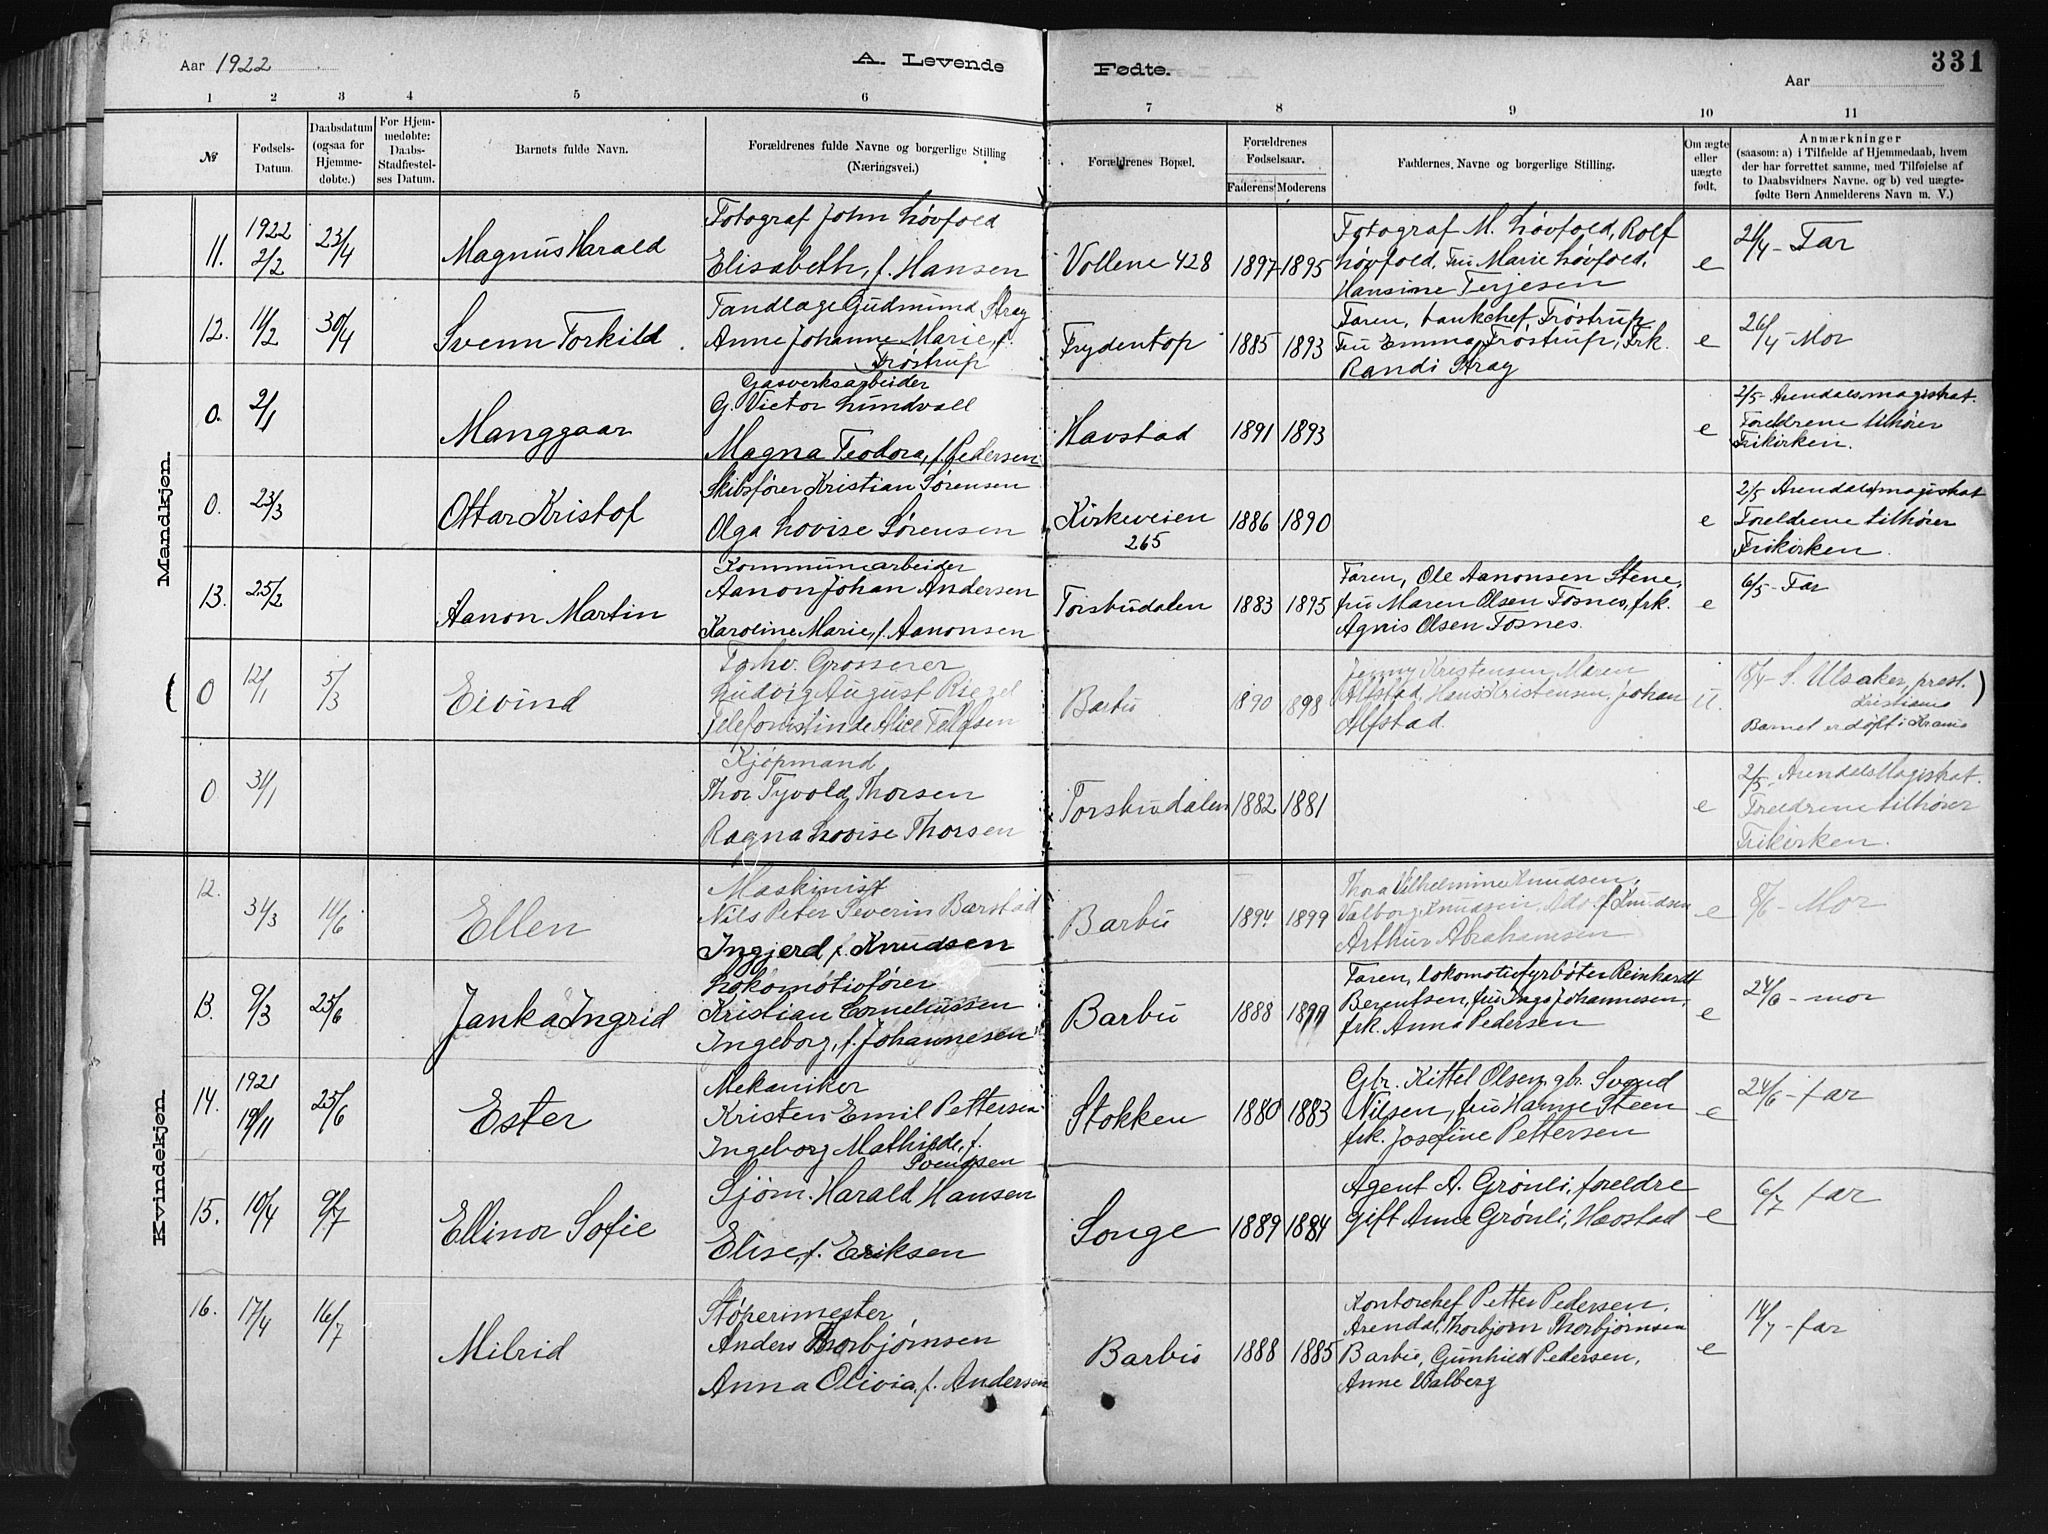 Aar 1922
A. Levende
Fødte.
Aar
331
1 2 3 4 5 6 7 8 9 10 11
№
Fødsels-
Datum.
Daabsdatum
(ogsaa for
Hjemme-
døbte.)
For Hjem-
medøbte:
Daabs-
Stadfæstel-
ses Datum.
Barnets fulde Navn.
Forældrenes fulde Navne og borgerlige Stilling
(Næringsvei.)
Forældrenes Bopæl.
Forældrenes
Fødselsaar.
Faderens Moderens
Faddernes Navne og borgerlige Stilling.
Om ægte
eller
uægte
født.
Anmærkninger
(saasom: a) i Tilfælde af Hjemmedaab, hvem
der har forrettet samme, med Tilføielse af
to Daabsvidners Navne, og b) ved uægte-
fødte Børn Anmelderens Navn m. V.)
Mandkjøn.
11.
1922
2/2
23/4
Magnus Harald
Fotograf John Løvfold
Elisabeth, f. Hansen
Vollene 428
1897 1895
Fotograf M. Løvfold, Rolf
Løvfold, Fru Marie Løvfold,
Hansine Terjesen
e
21/4 - Far
12.
11/2
30/4
Svenn Torkild.
Tandlæge Gudmund Stray
Anne Johanne Marie, f.
Trøstrup
Frydentop
1885 1893
Faren, bankchef Trøstrup,
Fru Emma Trøstrup, Frk.
Randi Stray
e
26/4 - Mor
0.
2/1
Manggaar
Gasverksarbeider
G. Victor Lundvall
Magna Teodora, f. Pedersen
Havstad
1891 1893
e
2/5 - Arendals magistrat.
Foreldrene tilhører
Frikirken.
0.
23/3
Ottar Kristof
Skibsfører Kristian Sørensen
Olga Lovise Sørensen
Kirkeveien
265
1886 1890
e
2/5 Arendals magistrat
Foreldrene tilhører
Frikirken.
13.
25/2
Aanon Martin
Kommunearbeider
Aanon Johan Andersen
Karoline Marie, f. Aanonsen
Torsbudalen
1883 1895
Faren, Ole Aanonsen Stene,
fru Maren Olsen Fosnes, frk.
Agnis Olsen Fosnes.
e
6/5 - Far
(
0
12/1
5/3
Eivind
Forhv. Grosserer
Ludvig August Riegel
Telefonistinde Alice Tellefsen
Barbu
1890 1898
Jenny Kristensen, Maren
Alfstad, Hans Kristensen, Johan
Alfstad.
u.
18/4 - S. Ulsaker, prest.
Kristiania
Barnet er døpt i Krania
)
0
31/1
Kjøpmand
Thor Tyvold Thorsen
Ragna Lovise Thorsen
Torsbudalen
1882 1881
e
2/5 - Arendals Magistrat.
Foreldrene tilhører
Frikirken.
Kvindekjøn.
12.
31/3
11/6
Ellen
Maskinist
Nils Peter Severin Barstad
Ingjerd f. Knudsen
Barbu
1894. 1899
Thora Vilhelmine Knudsen,
Valborg Knudsen, Adolf Knudsen
Arthur Abrahamsen
e
8/6 - Mor
13.
9/3
25/6
Janka Ingrid
Lokomotivfører
Kristian Corneliussen
Ingeborg, f. Johannesen
Barbu
1888
Faren, lokomotivfyrbøter Reinhardt
Berentsen, fru Inga Johannesen,
frk. Anna Pedersen
e
24/6 - mor
14.
1921
19/11
25/6
Ester
Mekaniker
Kristen Emil Pettersen
Ingeborg Mathilde, f.
Svendsen
Stokken
1880 1883
Gbr. Kittel Olsen, gbr. Svend
Nilsen, fru Hanne Steen
frk. Josefine Pettersen
e
24/6 - far
15.
10/4
9/7
Ellinor Sofie
Sjøm. Harald Hansen
Elise, f. Eriksen
Songe
1889 1884
Agent A. Grønli, foreldre
gift Anne Grønli, Havstad
e
6/7 far
16.
17/4
16/7
Milrid
Støperimester
Anders Thorbjørnsen
Anna Olivia, f. Andersen
Barbu
1888 1885
Kontorchef Petter Pedersen,
Arendal, Thorbjørn Thorbjørnsen
Barbu, Gunhild Pedersen,
Anne Walberg
e
14/7 - far